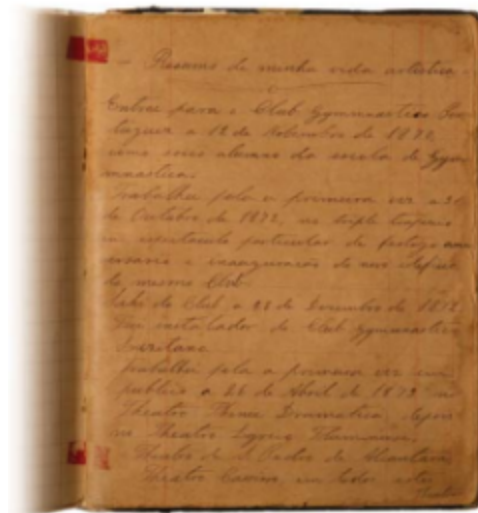 Resumo de minha vida artistica
Entrei para o Club Gymnastico Por-
tuguez a 12 de Novembro de 1872,
como socio alumno da escola de Gym-
nastica.
Trabalhei pela a primeira ver a
de Outubro de 1873, no triplo trapezio
espectaculo particular de festejo
e inauguração do
do mesmo Club.
Sahi do Club a 28 de Dezembro de 187
Fui installador do Club Gymnastico
Trabalhei pela a primeira ver em
publico a 26 de Abril de 1879 no
Theatro Dramatica, depois
no Theatro Lyrico Fluminense,
Theatro de D. Pedro de Alcantara
Theatro Cassino, em todos estes